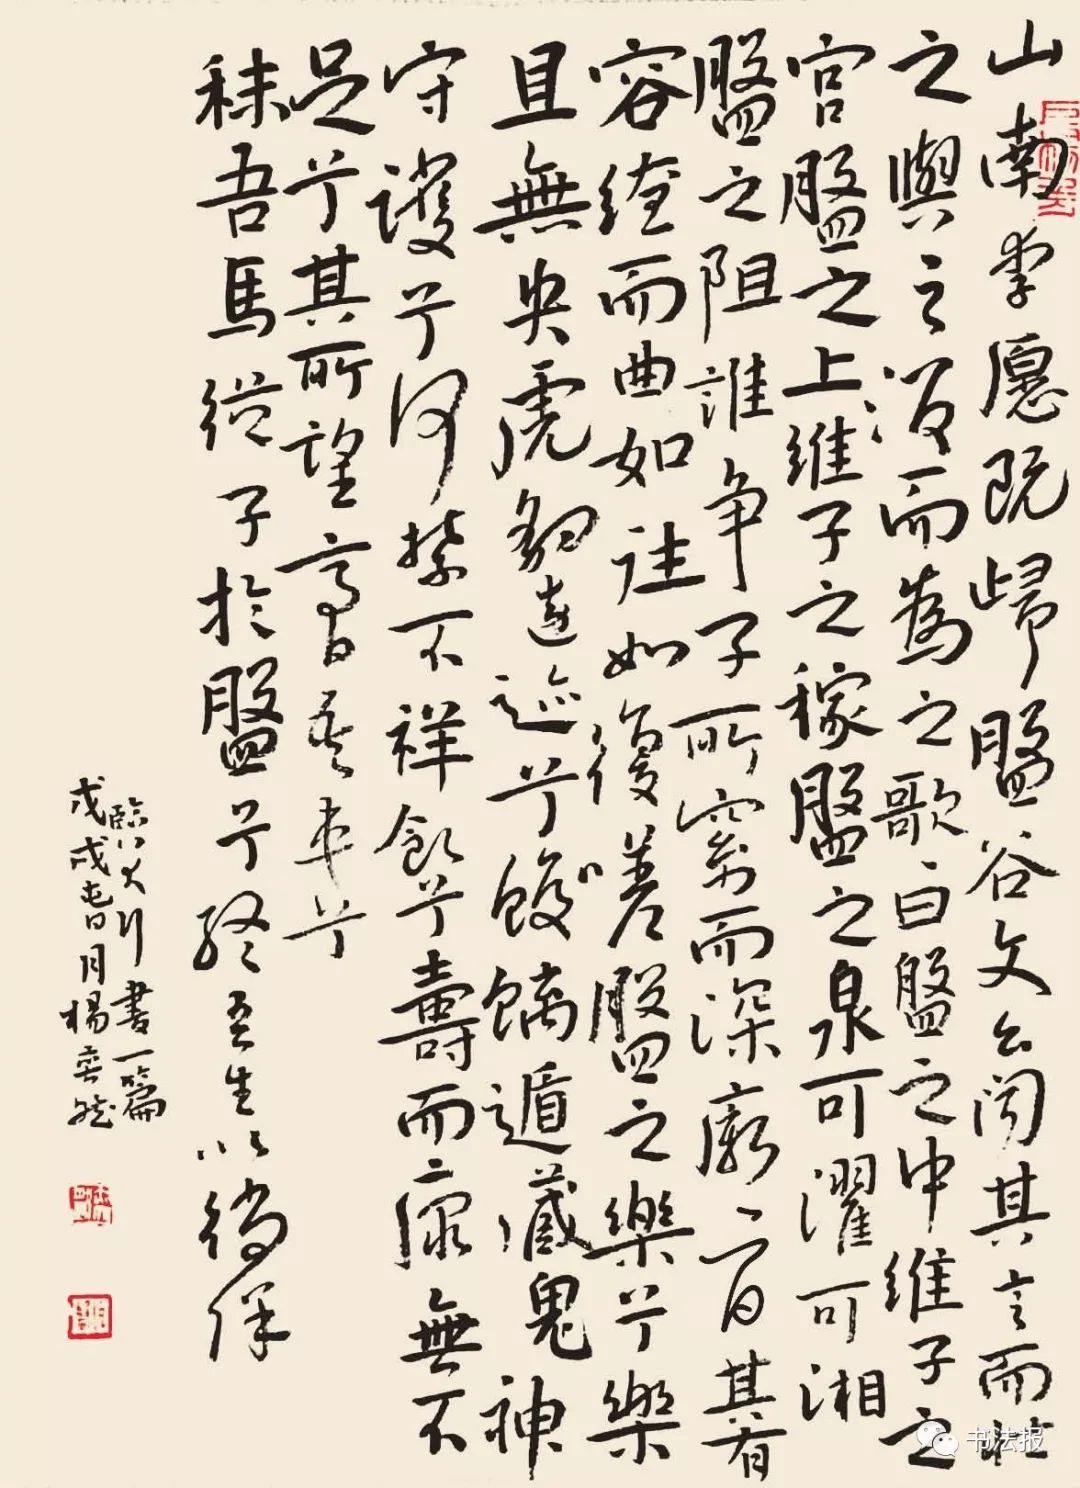 山南李愿既歸盤谷文公闻其言而壯
之與之酒而為之歌曰盤之中維子之
宫盤之上維子之稼盤之泉可濯可湘
盤之阻誰争子所窈而深廓其有
容繚而曲如往如復嗟盤之樂兮樂
且無央虎豹遠迹兮蛟螭遁藏鬼神
守護兮呵禁不祥飲兮壽而康無不
足兮其所望膏吾車兮
秣吾馬從子於盤兮終吾生以徜徉
臨八大行書一篇
戊戌春月楊
书法报